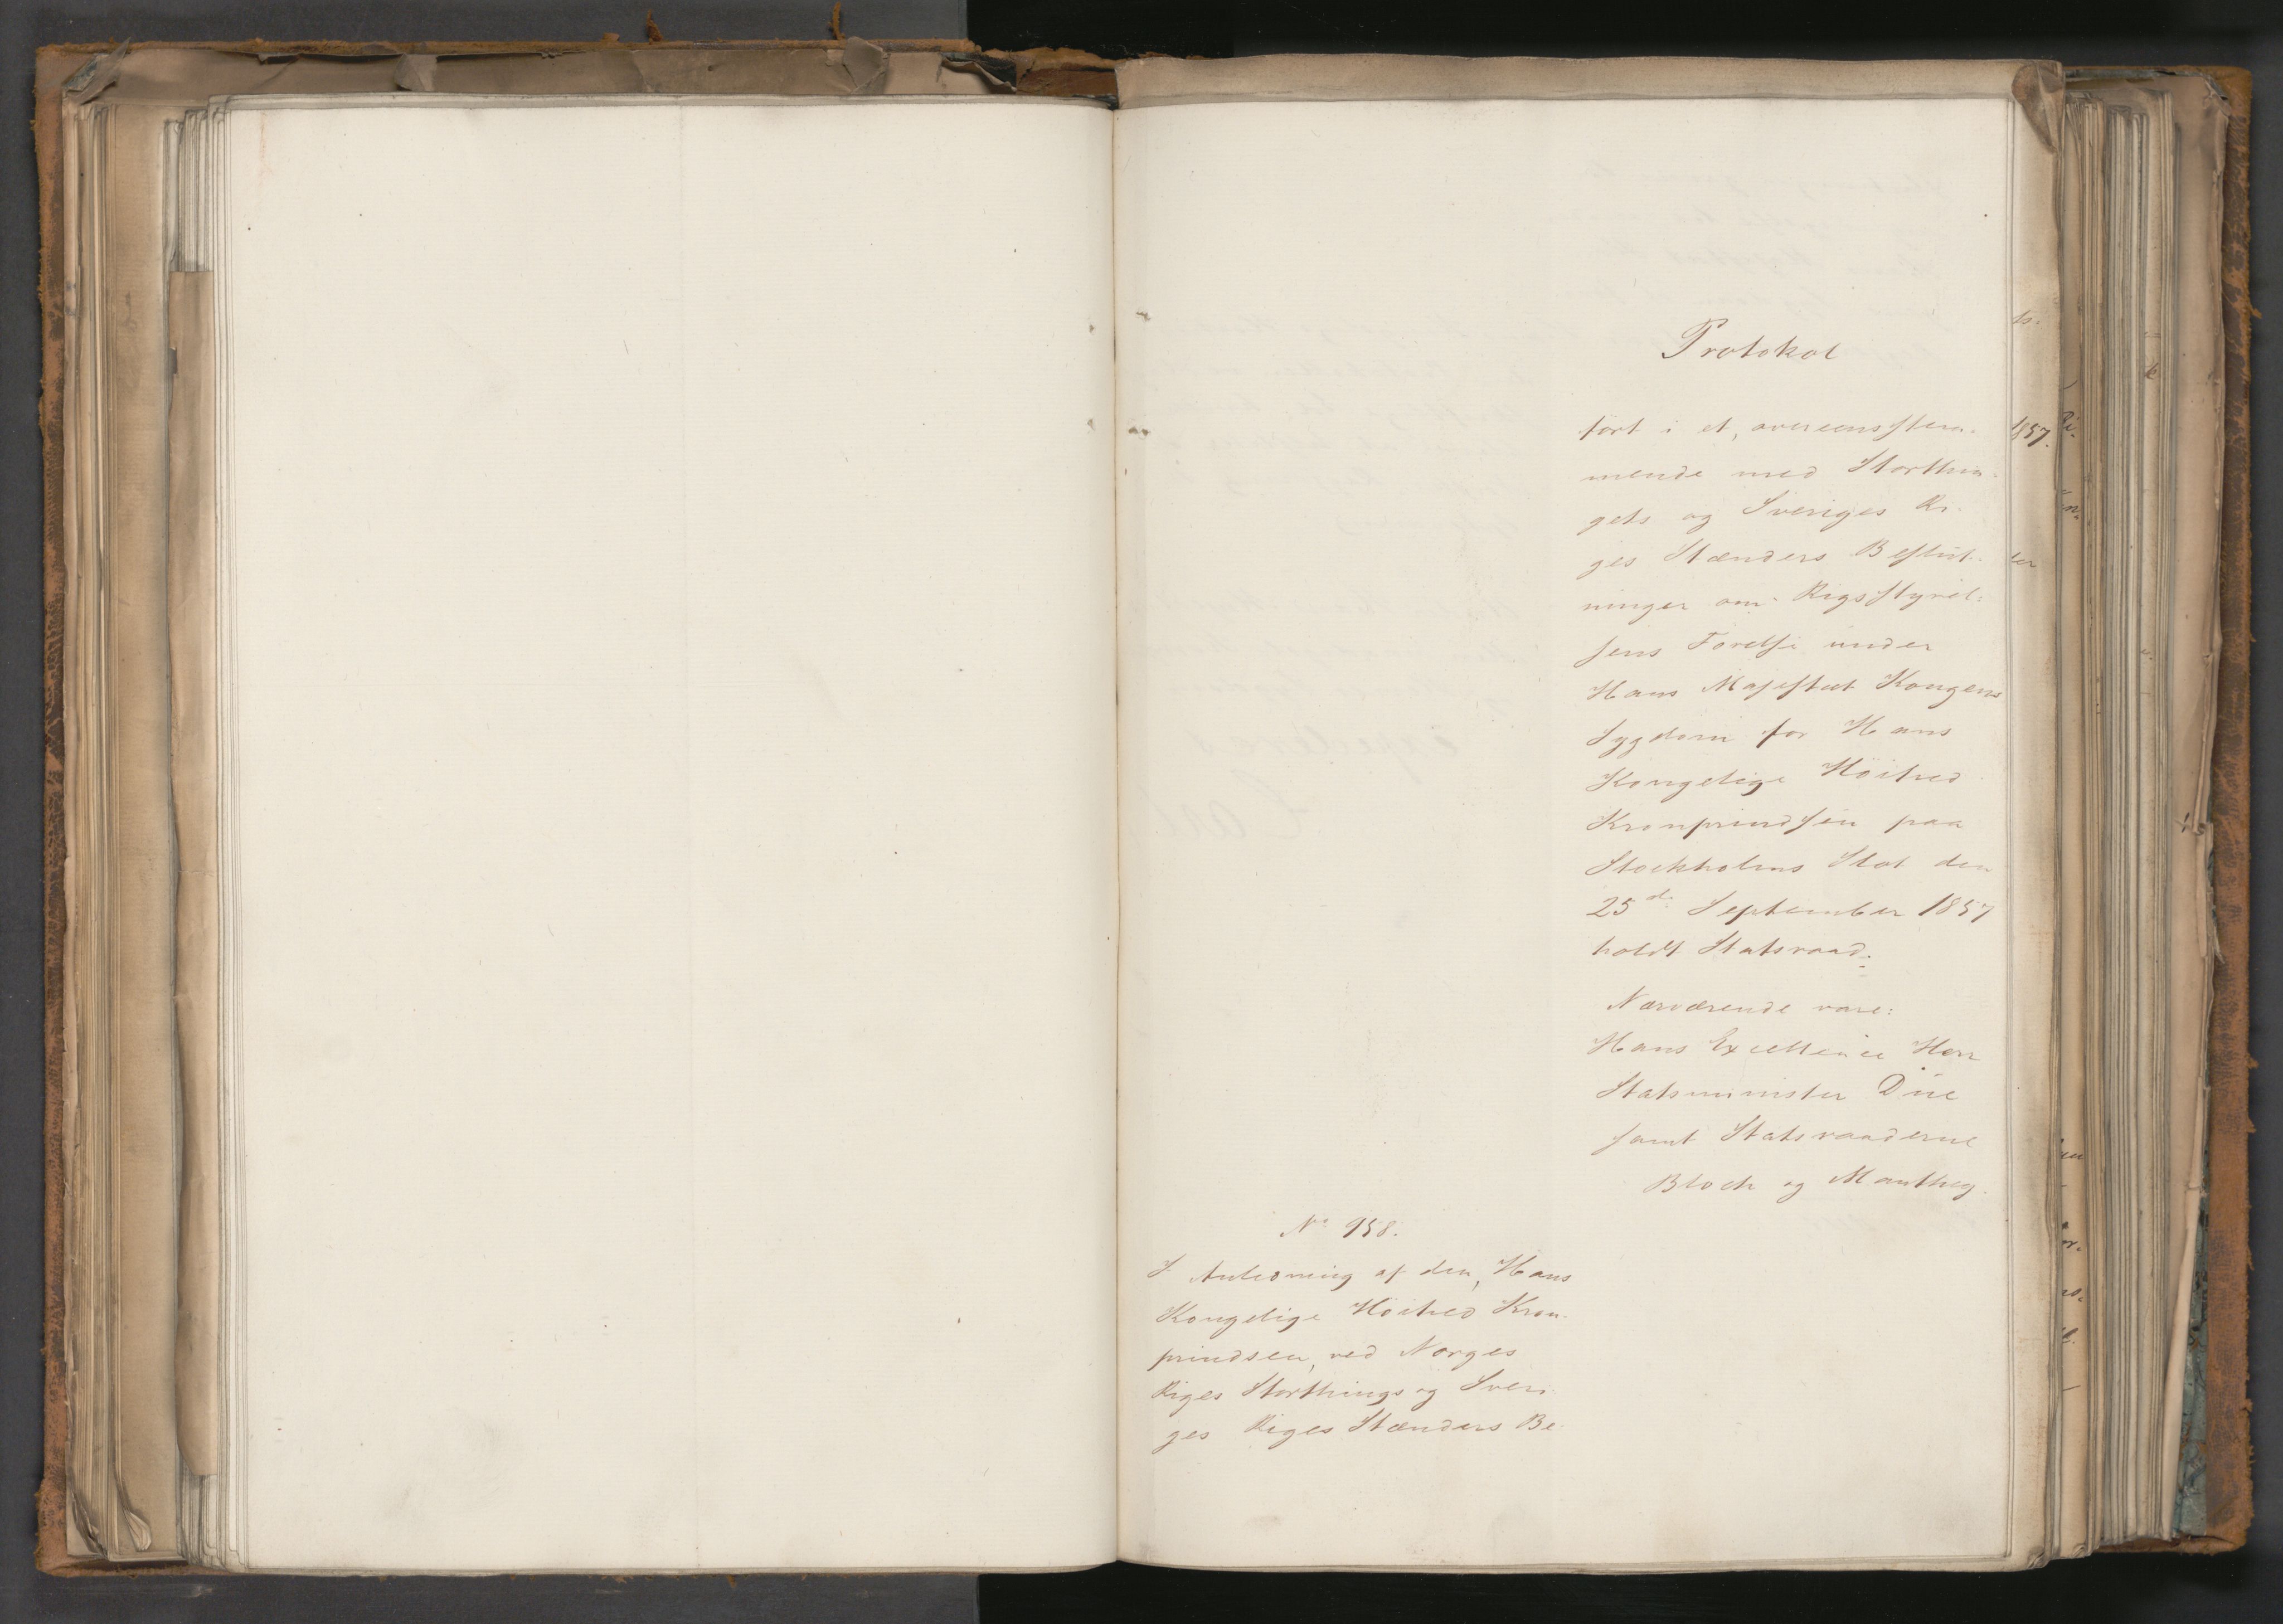 Protokol
ført i et, overeensstem-
mende med Storthin-
gets og Sveriges Ri-
ges Stænders Beslut-
ninger om Rigsstyrel-
sens Førelse under
Hans Majestæt Kongens
Sygdom for Hans
Kongelige Høihed
Kronprindsen paa
Stockholms Slot den
25de September 1857
holdt Statsraad.
Nærværende vare:
Hans Excellence Herr
Statsminister Düe
samt Statsraaderne
Bloch og Manthey.
No 958.
I Anledning af den, Hans
Kongelige Høihed Kron-
prindsen, ved Norges
Riges Storthings og Sveri-
ges Riges Stænders Be-
1857.